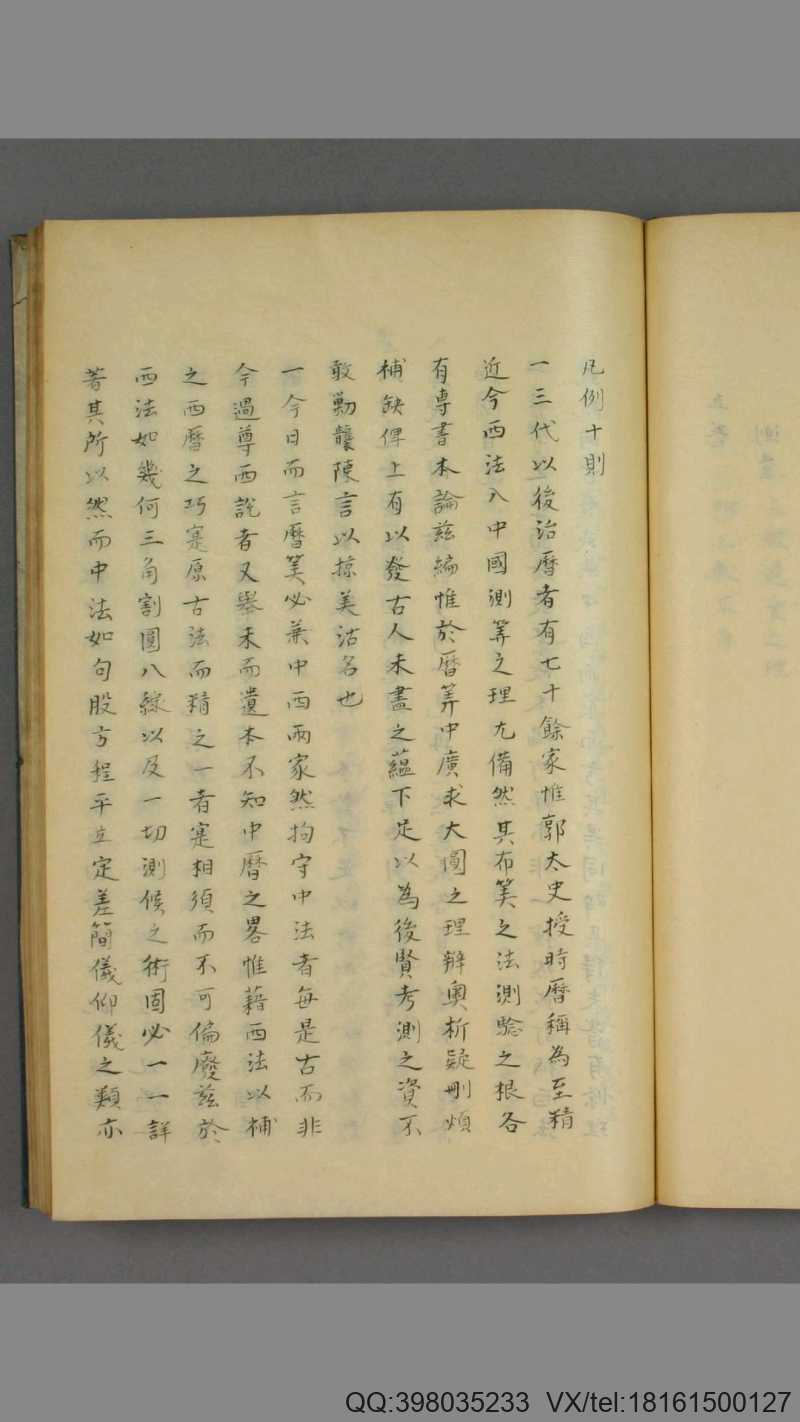 凡例十則
一三代以後治曆者有七十餘家惟郭太史授時曆稱為至精
近今西法入中國測筭之理尤備然其布筭之法測騐之根各
有專書本論兹編惟於曆筭中廣求大圜之理辯奧析疑刪煩
補缺俾上有以發古人未盡之蘊下足以為後賢考測之資不
敢勦襲陳言以掠美沽名也
一今日而言曆筭必兼中西兩家然拘守中法者每是古而非
今過尊西說者又舉末而遺本不知中曆之畧惟藉西法以補
之西曆之巧寔原古法而精之一者寔相須而不可偏廢兹於
西法如幾何三角割圜八線以及一切測候之術固必一一詳
著其所以然而中法如句股方程平立定差簡儀仰儀之類亦
QQ:398035233 VX/tel:18161500127